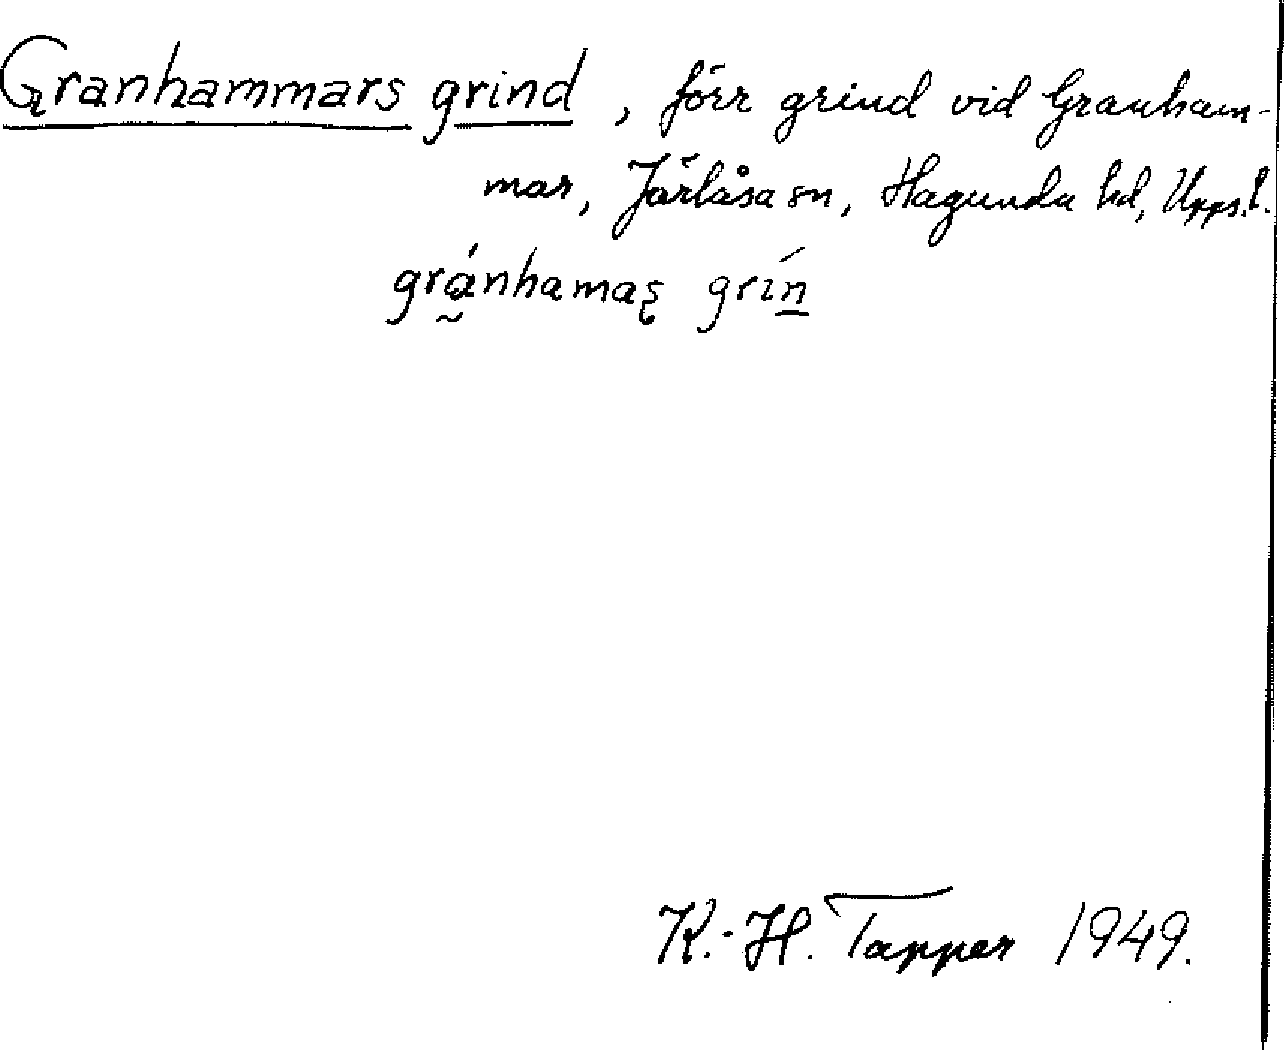 Granhammars grind, förr grind vid Granham-
mar, Järlåsa sn, Hagunda hd, Upps.l.
grá̰nhamaʂ grín̲
K.-H. Tapper 1949.